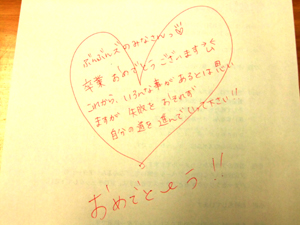 のみなさんっ♡
卒業おめでとうございます
これから、いろんな事があるとは思い
ますが失敗をおそれず
自分の道を進んでいって下さい!!
おめでとう!!